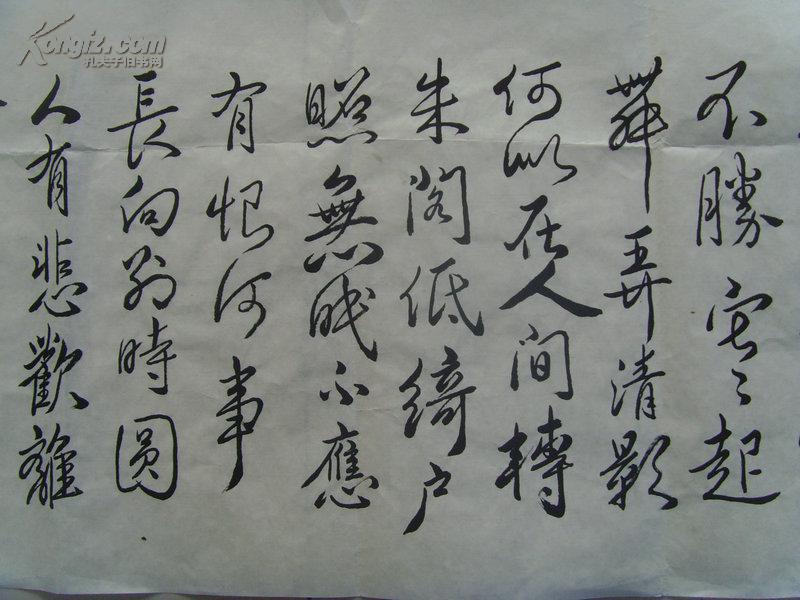 不勝寒起
舞弄清影
何似在人間轉
朱閣低綺户
照無眠不應
有恨何事
長向别時圓
人有悲歡離
Kongfz.com
孔夫子旧书网